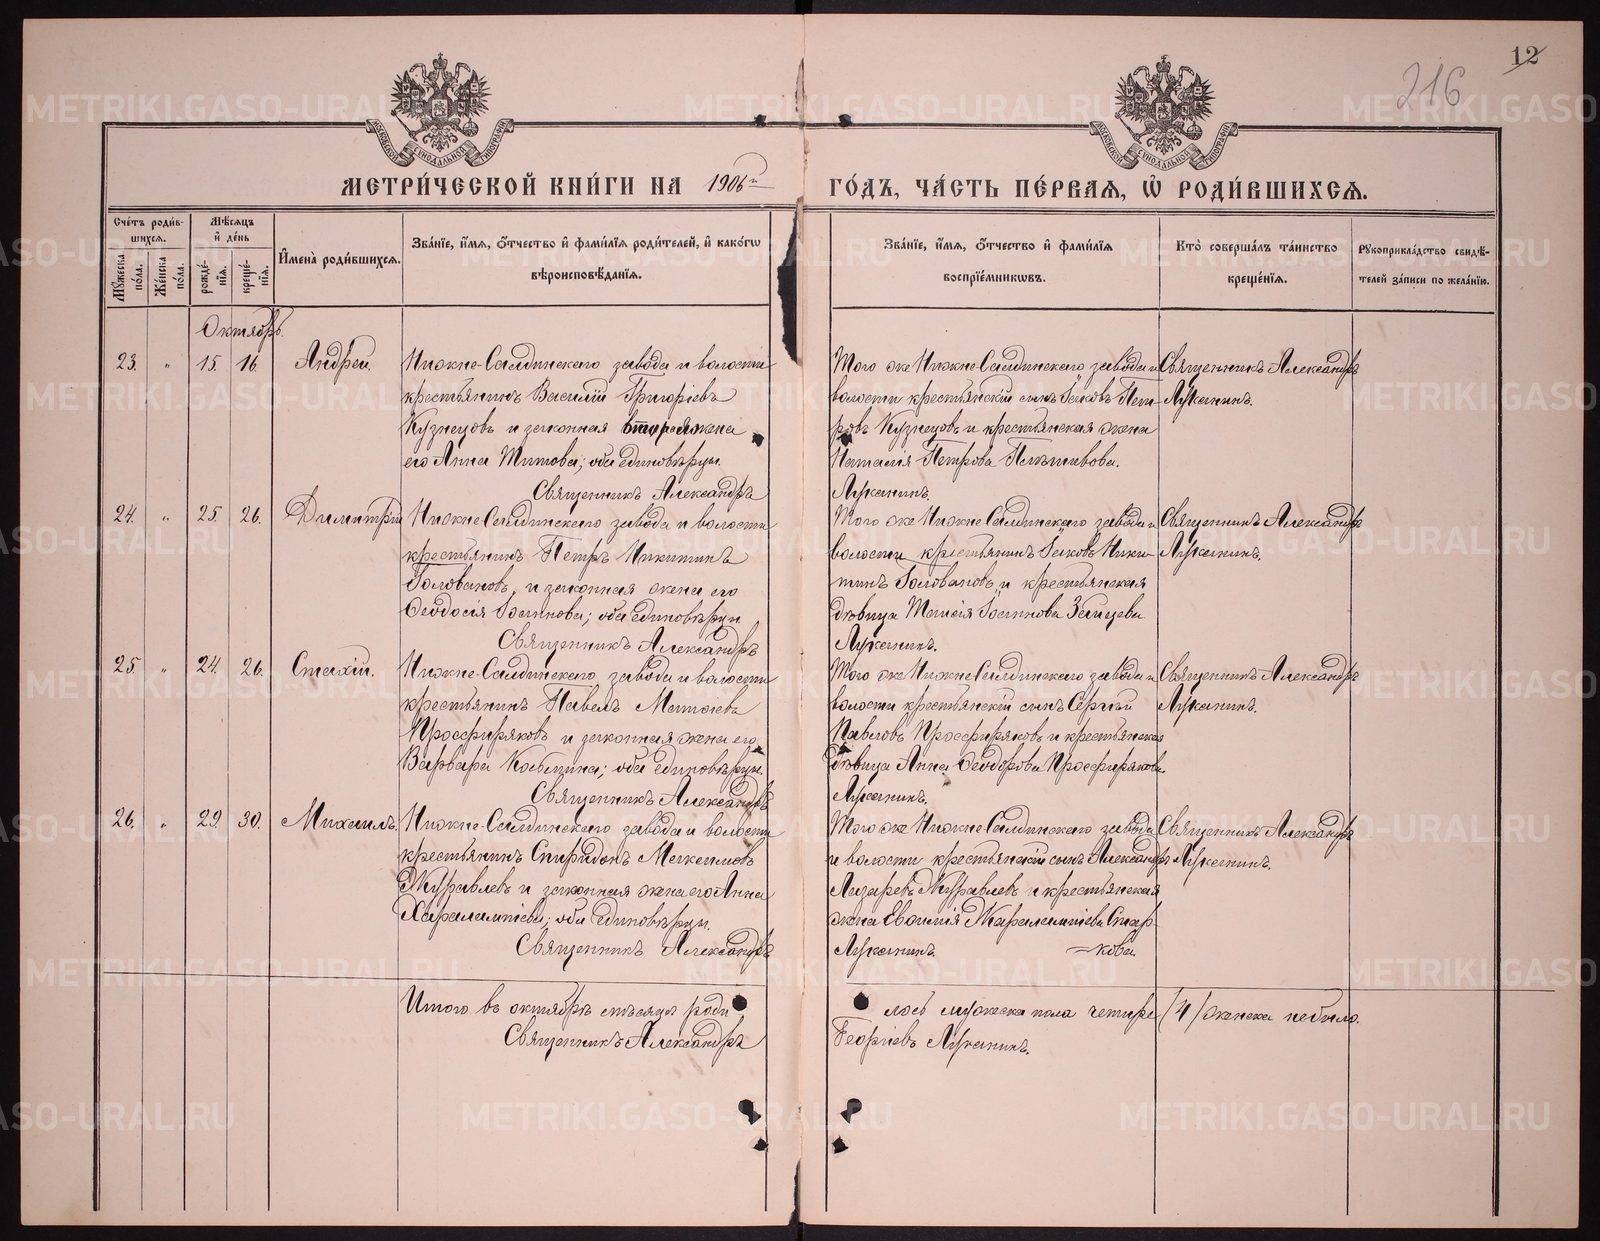 12
216
МОСКОВСКОЙ СУНОДАЛЬНОЙ ТИПОГРАФІИ
МОСКОВСКОЙ СУНОДАЛЬНОЙ ТИПОГРАФІИ
МЕТРИ́ЧЕСКОЙ КНИ́ГИ НА 1906й
ГО́ДЪ, ЧА́СТЬ ПЕ́РВАЯ, Ѡ҆ РОДИ́ВШИХСЯ.
Сче́тъ роди́вшихся.
Мѣ́сяцъ и҆ де́нь
Мꙋ́жеска по́ла.
Же́нска по́ла.
рожде́нїя.
креще́нїя.
И҆мена̀ роди́вшихся.
Зва́нїе, и҆́мя, ѻ҆́тчество и҆ фами́лїя роди́телей, и҆ како́гѡ
вѣроисповѣ́данїя.
Зва́нїе, и҆́мя, ѻ҆́тчество и҆ фами́лїя
воспрїе́мникѡвъ.
Кто̀ соверша́лъ та́инство
креще́нїя.
Рꙋкоприкла́дство свидѣ́-
телей за́писи по жела́нїю.
Октябрь.
23. " 15. 16. Андрей.
Нижне-Салдинскаго завода и волости
крестьянинъ Василій Григоріевъ
Кузнецовъ и законная вторая жена
его Анна Титова; оба единовѣрцы.
Священникъ Александръ
Того же Нижне-Салдинскаго завода и
волости крестьянскій сынъ Іаковъ Пет-
ровъ Кузнецовъ и крестьянская жена
Наталія Петрова Плѣшивова.
Луканинъ.
Священникъ Александръ
Луканинъ.
24. " 25. 26. Димитрій
Нижне-Салдинскаго завода и волости
крестьянинъ Петръ Никитинъ
Головановъ, и законная жена его
Ѳеодосія Іоаннова; оба единовѣрцы
Священникъ Александръ
Того же Нижне Салдинскаго завода и
волости крестьянинъ Іаковъ Ники-
тинъ Головановъ и крестьянская
дѣвица Таисія Іоаннова Зайцева
Луканинъ.
Священникъ Александръ
Луканинъ.
25. " 24. 26. Стахій.
Нижне-Салдинскаго завода и волости
крестьянинъ Павелъ Матѳіевъ
Просфиряковъ и законная жена его
Варвара Косьмина; оба единовѣрцы.
Священникъ Александръ
Того же Нижне-Салдинскаго завода и
волости крестьянскій сынъ Сергѣй
Павловъ Просфиряковъ и крестьянская
дѣвица Анна Ѳеодорова Просфирякова.
Луканинъ.
Священникъ Александръ
Луканинъ.
26. " 29. 30. Михаилъ.
Нижне-Салдинскаго завода и волости
крестьянинъ Спиридонъ Максимовъ
Журавлевъ и законная жена его Анна
Харалампіева; оба единовѣрцы.
Священникъ Александръ
Того же Нижне-Салдинскаго завода
и волости крестьянскій сынъ Александръ
Лазаревъ Журавлевъ и крестьянская
жена Евѳимія Харалампіева Стар-
кова.
Луканинъ.
Священникъ Александръ
Луканинъ.
Итого въ октябрѣ мѣсяцѣ роди
лось мужеска пола четыре /4/ женска небыло.
Священникъ Александръ
Георгіевъ Луканинъ.
METRIKI.GASO-URAL.RU